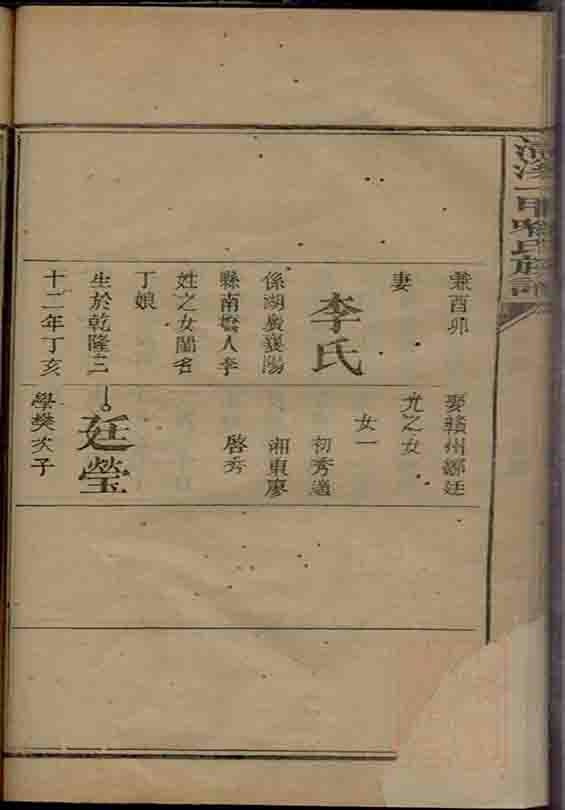 兼酉卯
妻
李氏
係湖廣襄陽
縣南橋人李
姓之女閨名
丁娘
生於乾隆三
十二年丁亥
娶贛州鄒廷
九之女
女一
初秀適
湘東廖
啓秀
廷瑩
學樊次子